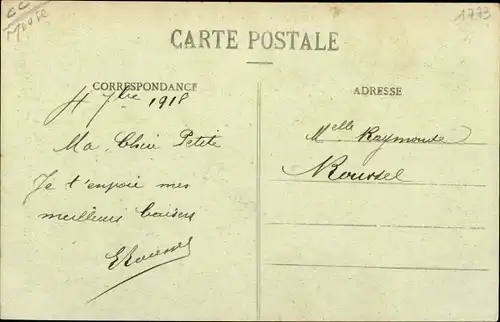 CC
Meuse
1773
CARTE POSTALE
CORRESPONDANCE
ADRESSE
4 7bre 1918
Ma Chère Petite
Je t'envoie mes
meilleurs baisers
ERoussel
Melle Raymonde
Roussel